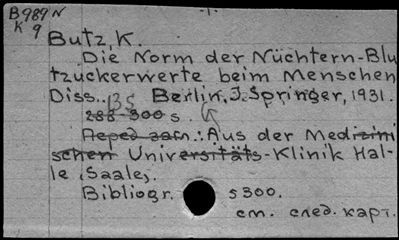 B989N
K 9
-1-
Butz, K.
Die Norm der Nüchtern-Blu
tzuckerwerte beim Menschen
Diss.. Berlin, J. Springer, 1931.
135
288-300 s.
Перед загл.: Aus der Medizini
schen Universitäts-Klinik Hal-
le (Saale).
Bibliogr. s 300.
см. след. карт.